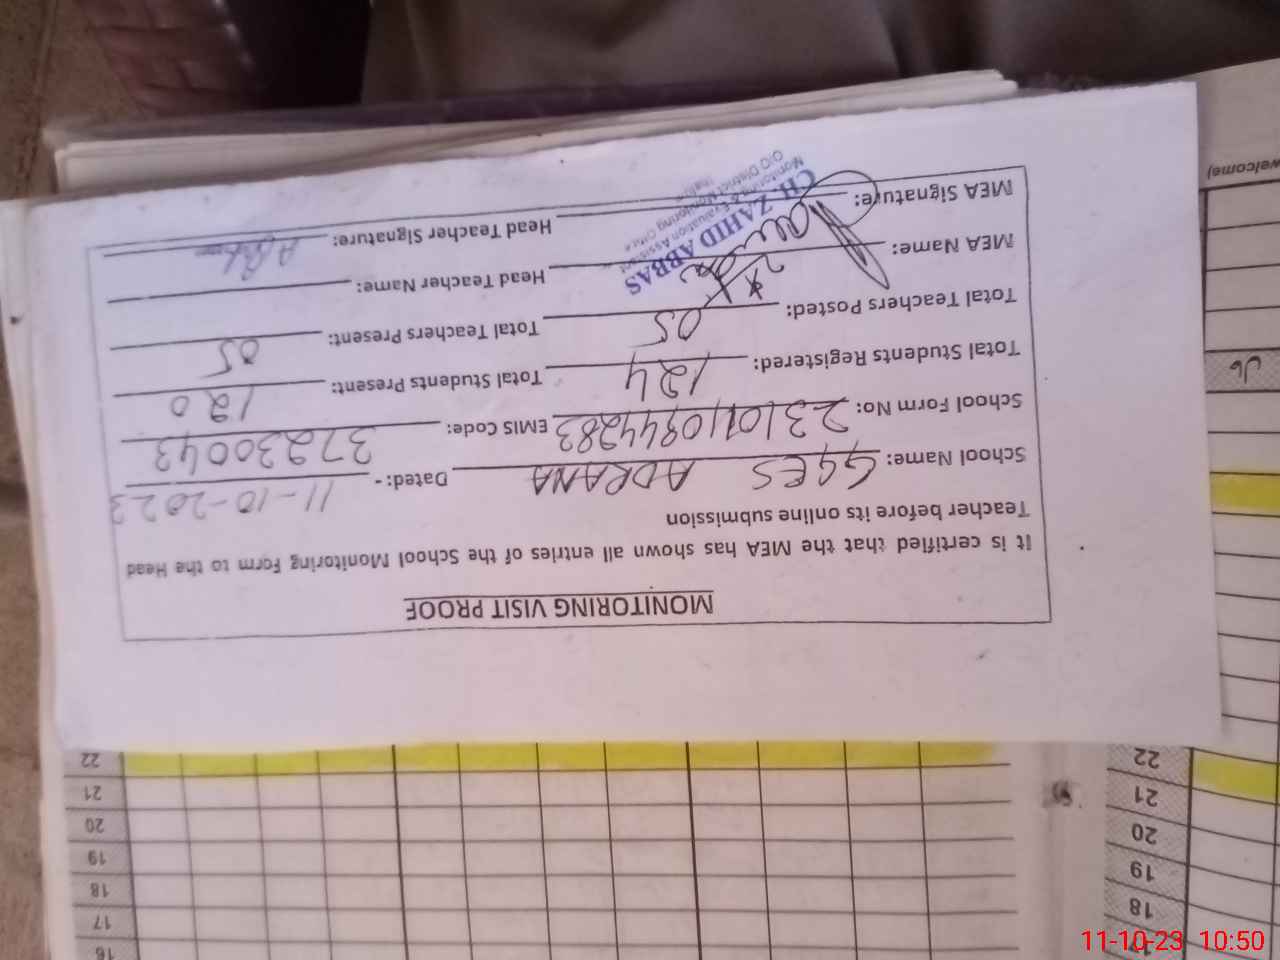 MONITORING VISIT PROOF
It is certified that the MEA has shown all entries of the School Monitoring Form to the Head
Teacher before its online submission
School Name: GGES ADRANA Dated: - 11-10-2023
School Form No: EMIS Code: 37230043
Total Students Registered: 124 Total Students Present: 120
Total Teachers Posted: 05 Total Teachers Present: 05
MEA Name: Head Teacher Name:
MEA Signature: Head Teacher Signature:
CH. ZAHID ABBAS
Monitoring & Evaluation Assistant
O/O District Monitoring Office
welcome)
16
17
18
19
20
21
22
18
19
20
21
22
11-10-23 10:50